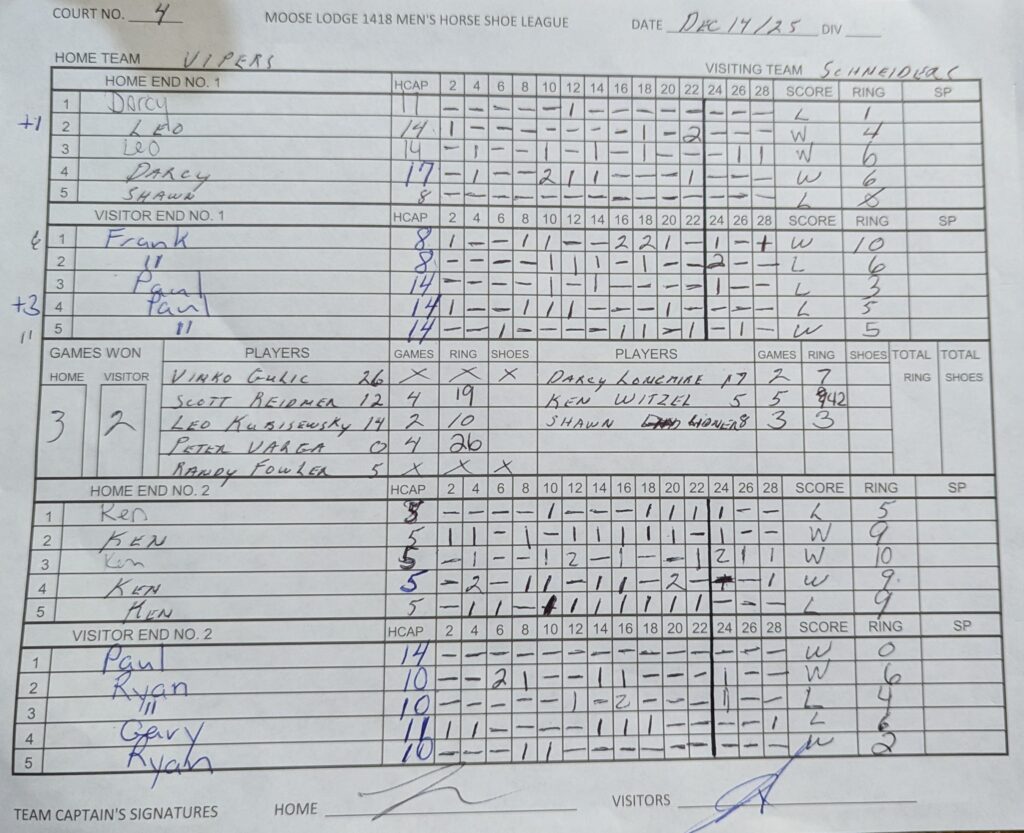 COURT NO. 4 MOOSE LODGE 1418 MEN'S HORSE SHOE LEAGUE DATE DEC 14/25 DIV
HOME TEAM VIPERS VISITING TEAM SCHNEIDERS
HOME END NO. 1 HCAP 2 4 6 8 10 12 14 16 18 20 22 24 26 28 SCORE RING SP
1 Darcy 17 - - - - - 1 - - - - - - - - L 1
+1 2 LEO 14 1 - - - - - - - 1 - 2 - - - W 4
3 Leo 14 - 1 - - 1 - 1 - 1 - - - 1 1 W 6
4 DARCY 17 - 1 - - 2 1 1 - - - 1 - - - W 6
5 SHAWN 8 - - - - - - - - - - - - - - L 0
VISITOR END NO. 1 HCAP 2 4 6 8 10 12 14 16 18 20 22 24 26 28 SCORE RING SP
1 Frank 8 1 - - 1 1 - - 2 2 1 - 1 - + W 10
2 " 8 - - - - 1 1 1 - 1 - - 2 - - L 6
3 Paul 14 - - - - 1 - 1 - - - - 1 - - L 3
+3 4 Paul 14 1 - - 1 1 1 - - - 1 - - - - L 5
11 5 " 14 - - 1 - - - - 1 1 - 1 - 1 - W 5
GAMES WON PLAYERS GAMES RING SHOES PLAYERS GAMES RING SHOES TOTAL RING TOTAL SHOES
HOME VISITOR
3 2
VINKO GULIC 26 X X X DARCY LONGMIRE 17 2 7
SCOTT REIDMER 12 4 19 KEN WITZEL 5 5 42
LEO KUBISEWSKY 14 2 10 SHAWN LIONER 8 3 3
PETER VARGA 0 4 26
RANDY FOWLER 5 X X X
HOME END NO. 2 HCAP 2 4 6 8 10 12 14 16 18 20 22 24 26 28 SCORE RING SP
1 Ken 5 - - - - 1 - - - 1 1 1 1 - - L 5
2 KEN 5 1 1 - 1 - 1 1 1 1 1 - 1 - - W 9
3 Ken 5 - 1 - - 1 2 - 1 - - 1 2 1 1 W 10
4 KEN 5 - 2 - 1 1 - 1 1 - 2 - - - 1 W 9
5 KEN 5 - 1 1 - 1 1 1 1 1 1 1 - - - L 9
VISITOR END NO. 2 HCAP 2 4 6 8 10 12 14 16 18 20 22 24 26 28 SCORE RING SP
1 Paul 14 - - - - - - - - - - - - - - W 0
2 Ryan 10 - - 2 1 - - 1 1 - - - 1 - - W 6
3 " 10 - - - - - 1 - 2 - - - 1 - - L 4
4 Gary 11 1 1 - - - - 1 1 1 - - - - 1 L 6
5 Ryan 10 - - - 1 1 - - - - - - - - - W 2
TEAM CAPTAIN'S SIGNATURES HOME VISITORS